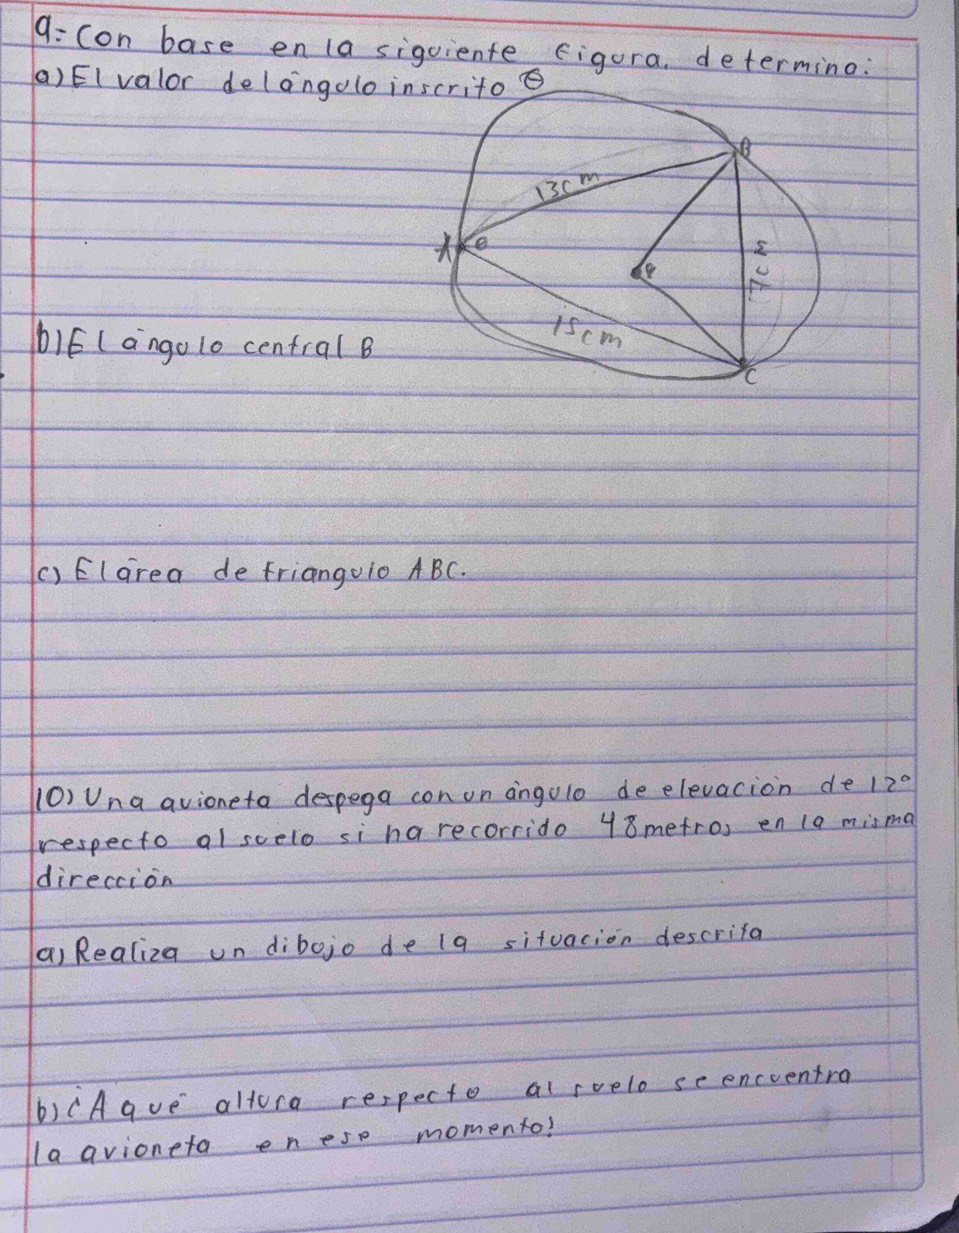 9= Con base en la siguiente figura, determina:
a) El valor del ángulo inscrito θ
B
13cm
A
θ
7cm
15cm
C
b) El ángulo central B
c) El área de triangulo ABC.
10) Una avioneta despega con un ángulo de elevación de 12°
respecto al suelo si ha recorrido 48 metros en la misma
dirección
a) Realiza un dibujo de la situación descrita
b) ¿A qué altura respecto al suelo se encuentra
la avioneta en ese momento?